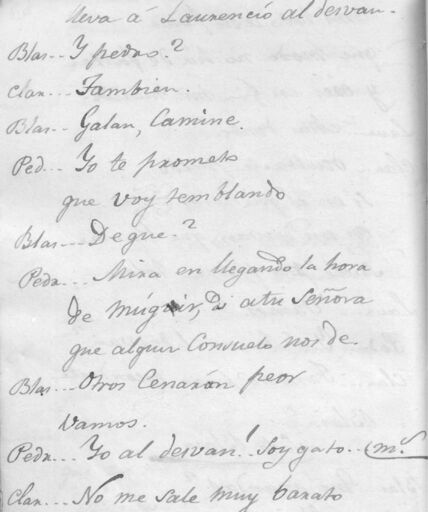 lleva á Laurencio al desvan.
Blas... Y pedro?
Clar... Tambien.
Blas... Galan, Camine.
Ped... Yo te prometo
que voy temblando
Blas... De que?
Pedr... Mira en llegando la hora
de múquir, Di atu Señora
que algun Consuelo nos de.
Blas... Otros Cenarán peor
vamos.
Pedr... Yo al desvan! Soy gato.
Clar... No me sale muy barato